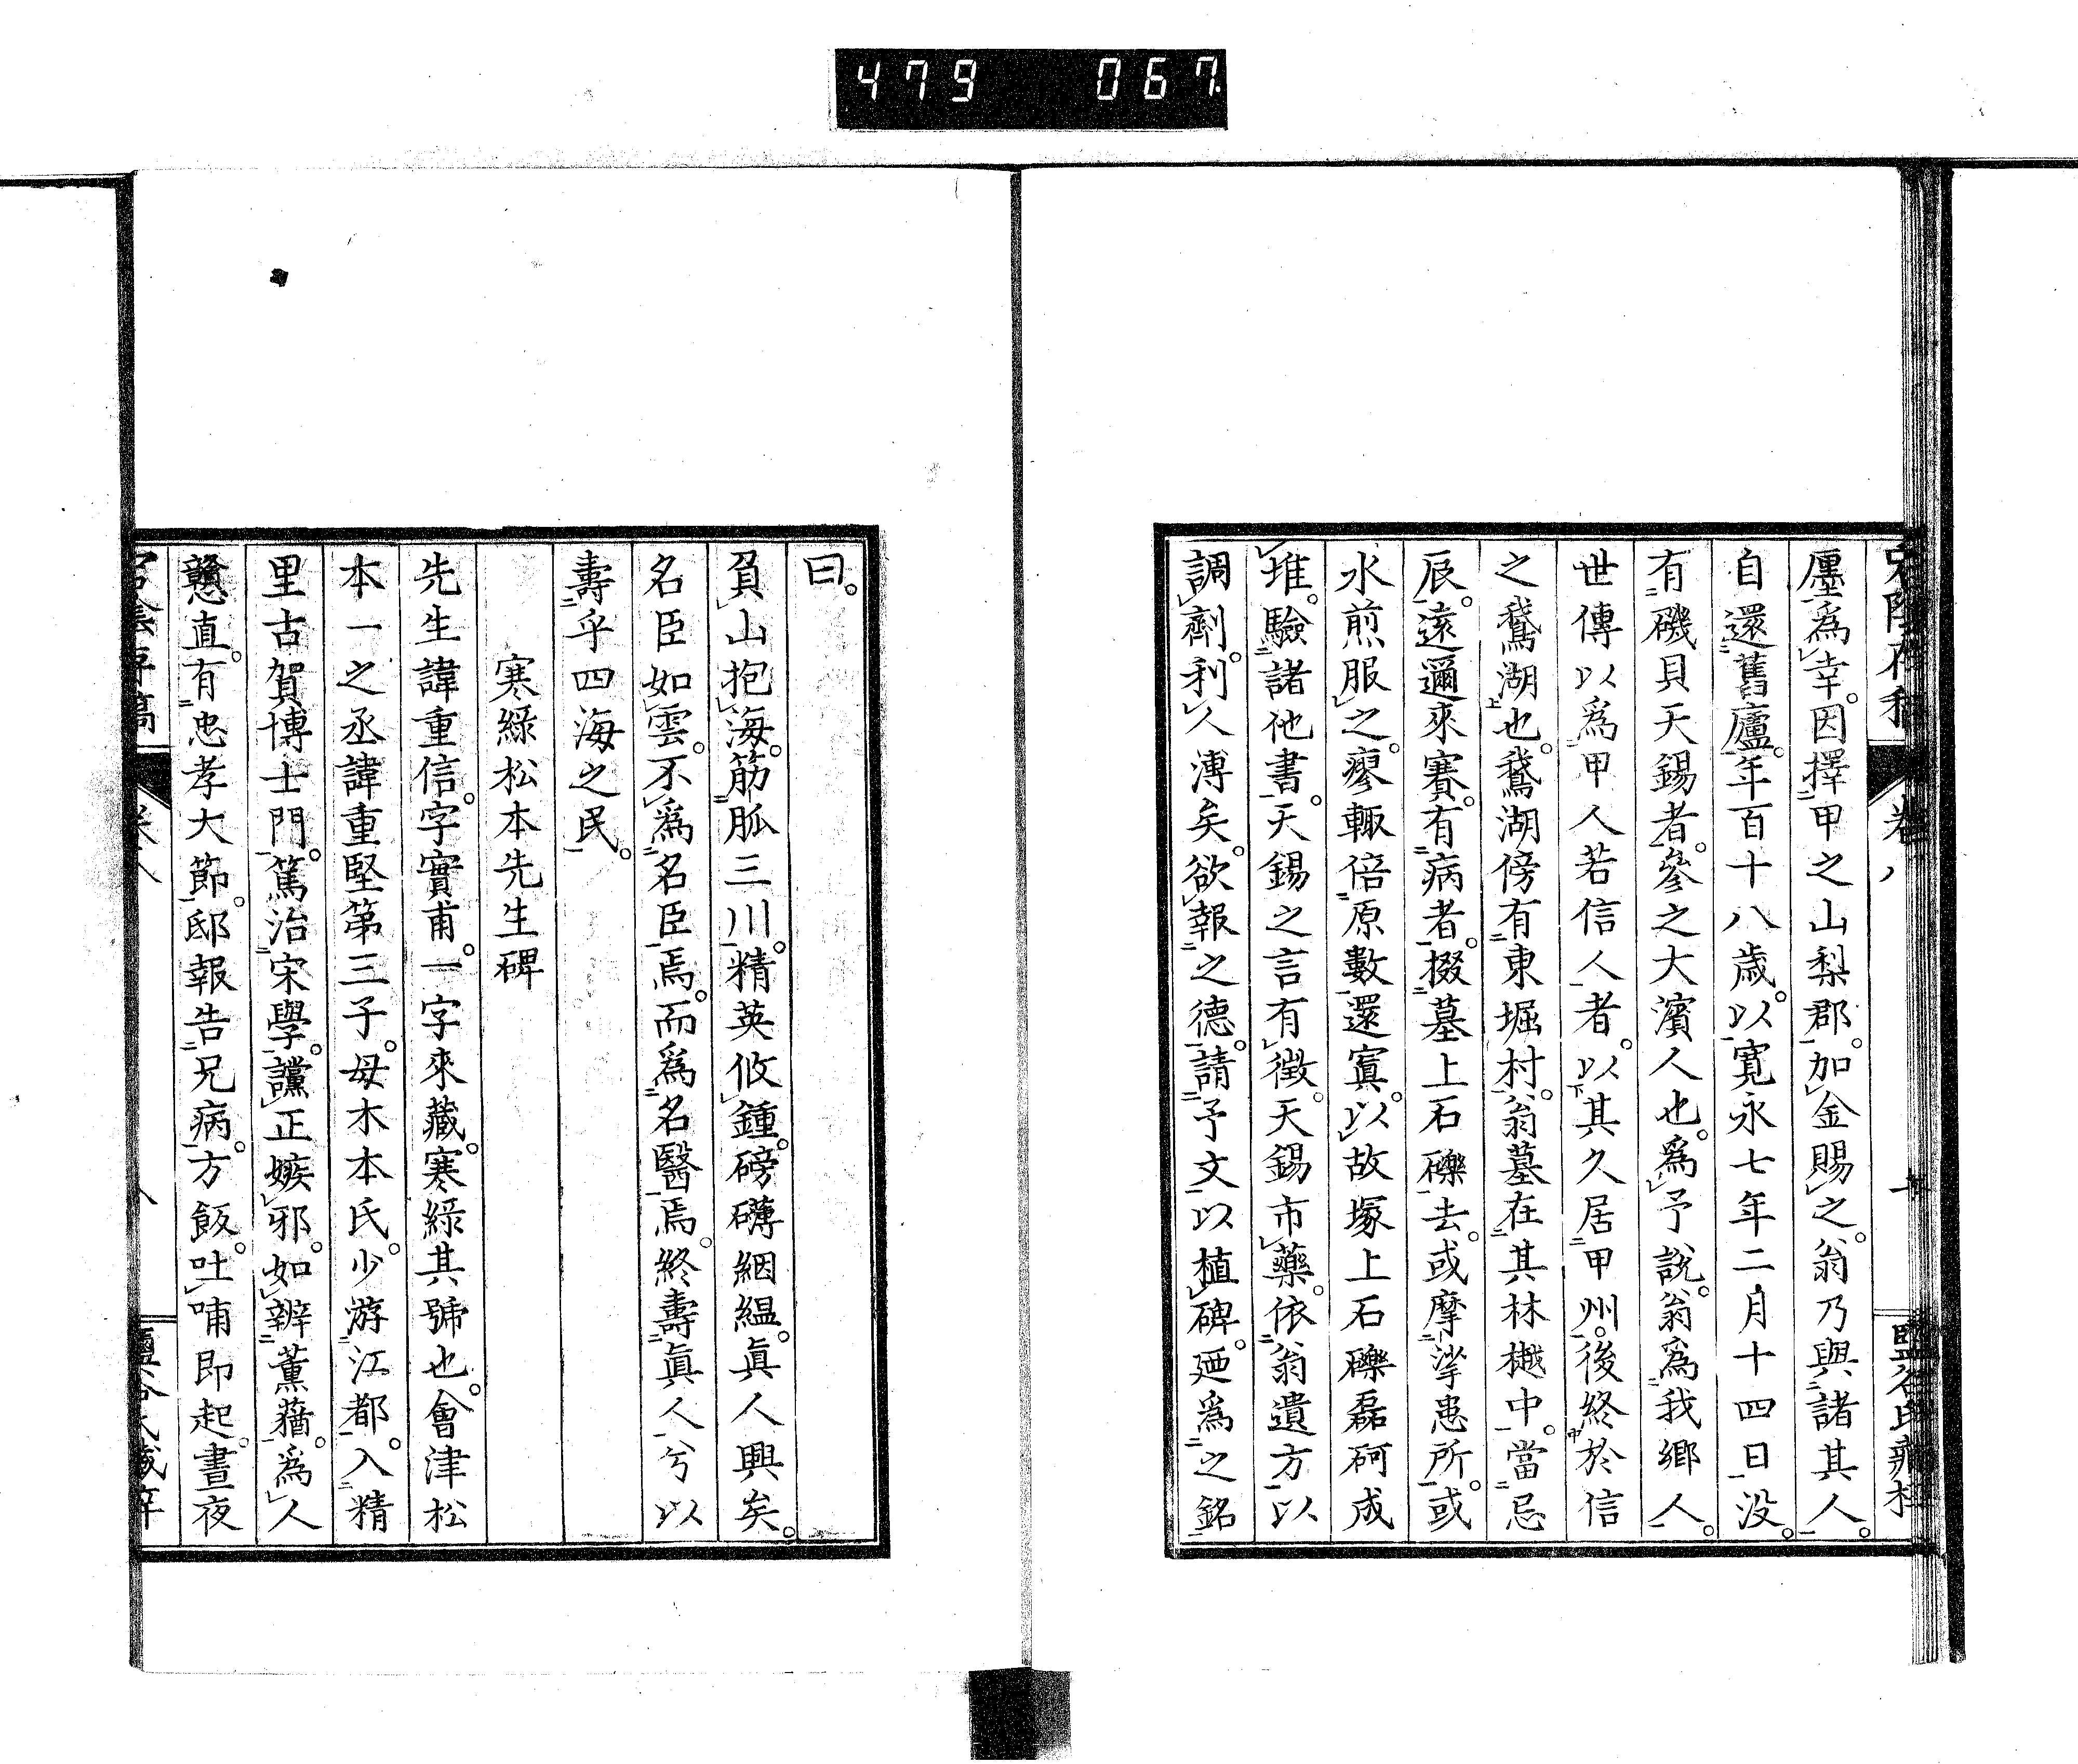 479 067.
卷八
廛爲幸。因擇甲之山梨郡。加金賜之。翁乃與諸其人。
自還舊廬。年百十八歳。以寛永七年二月十四日没。
有磯貝天錫者。參之大濱人也。爲予說。翁爲我鄉人。
世傳以爲甲人若信人者。以其久居甲州。後終於信
之鵞湖也。鵞湖傍有東堀村。翁墓在其林樾中。當忌
辰。遠邇來賽。有病者。掇墓上石礫去。或摩挲患所。或
水煎服之。瘳輒倍原數還寘。以故塚上石礫磊砢成
堆。驗諸他書。天錫之言有徵。天錫市藥。依翁遺方以
調劑。利人溥矣。欲報之德。請予文以植碑。廼爲之銘
曰。
負山抱海。筋脈三川。精英攸鍾。磅礴絪縕。眞人興矣。
名臣如雲。不爲名臣焉。而爲名醫焉。終壽眞人兮以
壽乎四海之民。
寒綠松本先生碑
先生諱重信。字實甫。一字來藏。寒綠其號也。會津松
本一之丞諱重堅第三子。母木本氏。少游江都。入精
里古賀博士門。篤治宋學。讜正嫉邪。如辨薫蕕。爲人
戇直。有忠孝大節。邸報告兄病。方飯。吐哺即起。晝夜